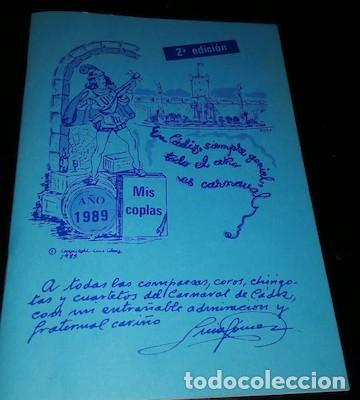 2ª edición
En Cádiz, siempre genial,
todo el año
es carnaval
AÑO
1989
Mis
coplas
© Copyright Luis
1989
A todas las comparsas, coros, chirigo-
tas y cuartetos del Carnaval de Cádiz,
con mi entrañable admiración y
fraternal cariño
todocoleccion.net